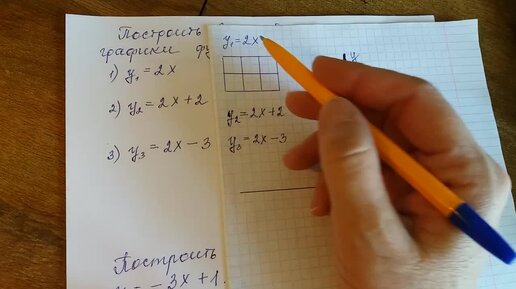 Построить
графики
1) y₁ = 2x
2) y₂ = 2x + 2
3) y₃ = 2x − 3
Построить
− 3x + 1.
y₁ = 2x
y₂ = 2x + 2
y₃ = 2x − 3
y